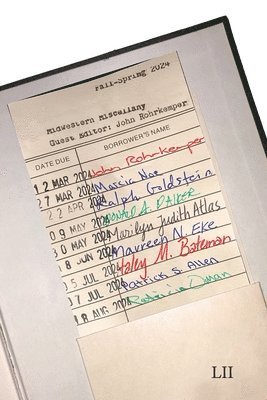 Fall-Spring 2024
Midwestern Miscellany
Guest Editor: John Rohrkemper
DATE DUE BORROWER'S NAME
12 MAR 2024 John Rohrkemper
27 MAR 2024 Marcia Noe
22 APR 2024 Ralph Goldstein
09 MAY 2024 Ronald A. Primeau
30 MAY 2024 Marilyn Judith Atlas
18 JUN 2024 Maureen N. Eke
05 JUL 2024 Haley M. Bateman
07 JUL 2024 Patrick S. Allen
18 AUG 2024 Patricia Oman
LII